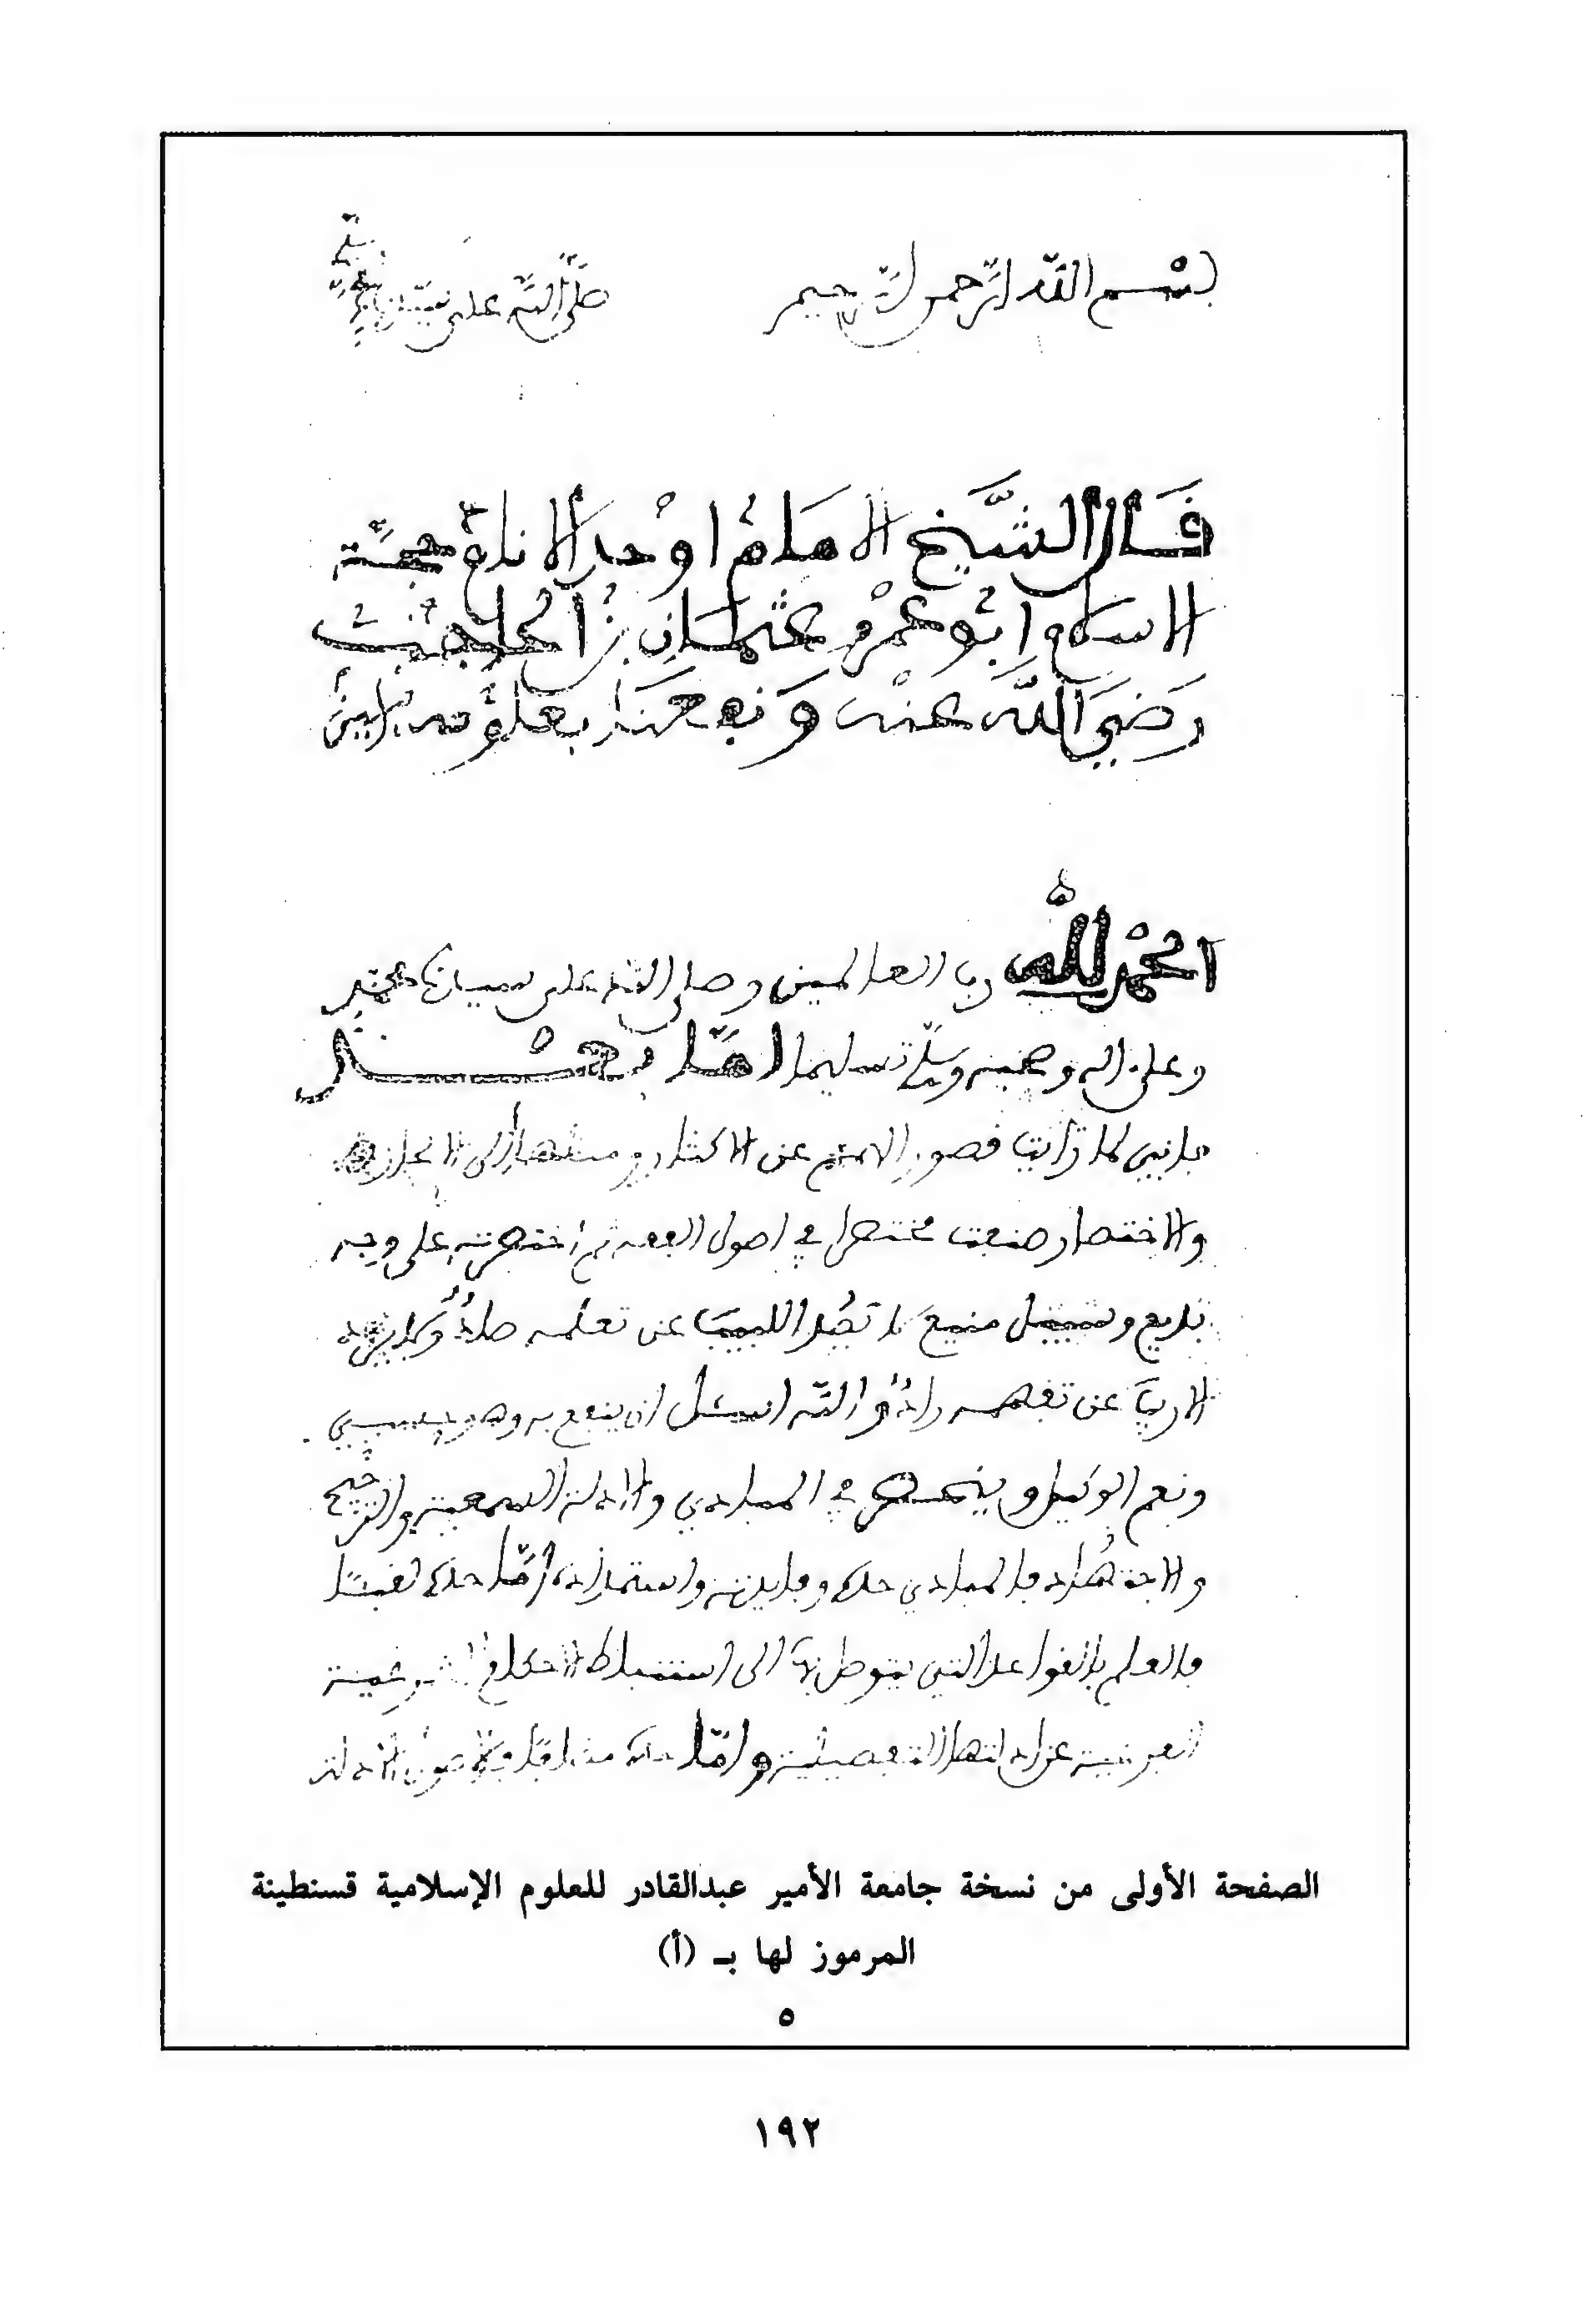 بسم الله الرحمن الرحيم صلى الله على نبينا محمد
قال الشيخ الإمام أوحد الأنام حجة
الاسلام أبو عمرو عثمان بن الحاجب
رضي الله عنه ونفعنا بعلومه آمين
الحمد لله رب العالمين وصلى الله على سيدنا محمد
وعلى اله وصحبه وسلم تسليما اما بعد
فإني لما رأيت قصور الهمم عن الاكثار وميلها إلى الايجاز
والاختصار صنعت مختصرا في اصول الفقه ثم اختصرته على وجه
بديع وسبيل منيع لا يصد اللبيب عن تعلمه صاد ولا يرد
الاريب عن تفهمه راد والله اسئل ان ينفع به وهو حسبي
ونعم الوكيل وينحصر في المبادي والادلة السمعية والترجيح
والاجتهاد فالمبادي حده وفايدته واستمداده أما حده لقبا
فالعلم بالقواعد التي يتوصل بها الى استنباط الاحكام الشرعية
الفرعية عن ادلتها التفصيلية واما حده مضافا فالاصول الادلة
الصفحة الأولى من نسخة جامعة الأمير عبدالقادر للعلوم الإسلامية قسنطينة
المرموز لها بـ (أ)
٥
١٩٢